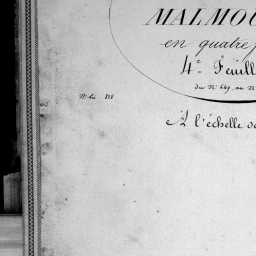 MALMOU
en quatre
4e Feuill
du No 469, au N
A l'échelle de